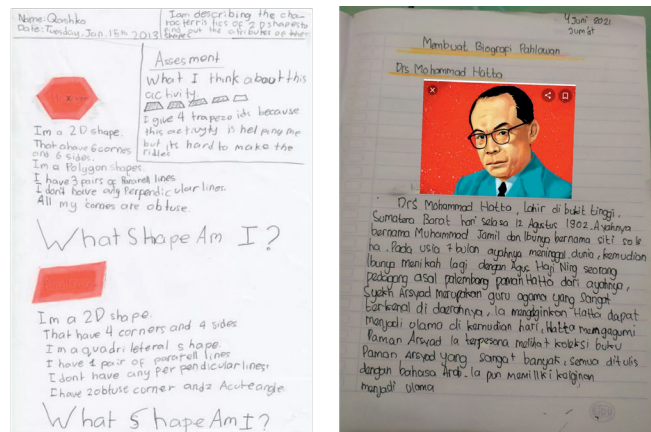 Name: Qashko
Date: Tuesday, Jan. 15th 2013
I am describing the cha-
racterristics of 2D shapes to
find out the atributes of them
shapes
Assesment
What I think about this
activity.
I give 4 trapezoids because
this activyty is help ing me
but its hard to make the
riddles
Im a 2D shape.
That ahave 6 cornes
and 6 sides.
Im a Polygon shapes.
I have 3 pairs of Pararell lines
I don't have any Perpendicular lines.
All my cornes are obtuse.
What Shape Am I?
Im a 2D shape.
That have 4 corners and 4 sides
I m a quadrileteral shape.
I have 1 pair of pararell lines
I dont have any per pendicular lines.
I have 2 obtuse corner and 2 Acute angle.
What Shape Am I?
4 Juni 2021
Jum'at
Membuat Biografi Pahlawan
Drs Mohammad Hatta
Drs Mohammad Hatta, lahir di bukit tinggi,
Sumatera Barat hari selasa 12 Agustus 1902. Ayahnya
bernama Muhammad Jamil dan Ibunya bernama siti sale
ha. Pada usia 7 bulan ayahnya meninggal dunia, kemudian
Ibunya menikah lagi dengan Agus Haji Ning seorang
pedagang asal palembang paman Hatta dari ayahnya,
Syekh Arsyad merupakan guru agama yang sangat
terkenal di daerahnya, Ia menginginkan Hatta dapat
menjadi ulama di kemudian hari, Hatta mengagumi
Paman Arsyad Ia terpesona melihat koleksi buku
Paman Arsyad yang sangat banyak, semua ditulis
dengan bahasa Arab. Ia pun memiliki keinginan
menjadi ulama